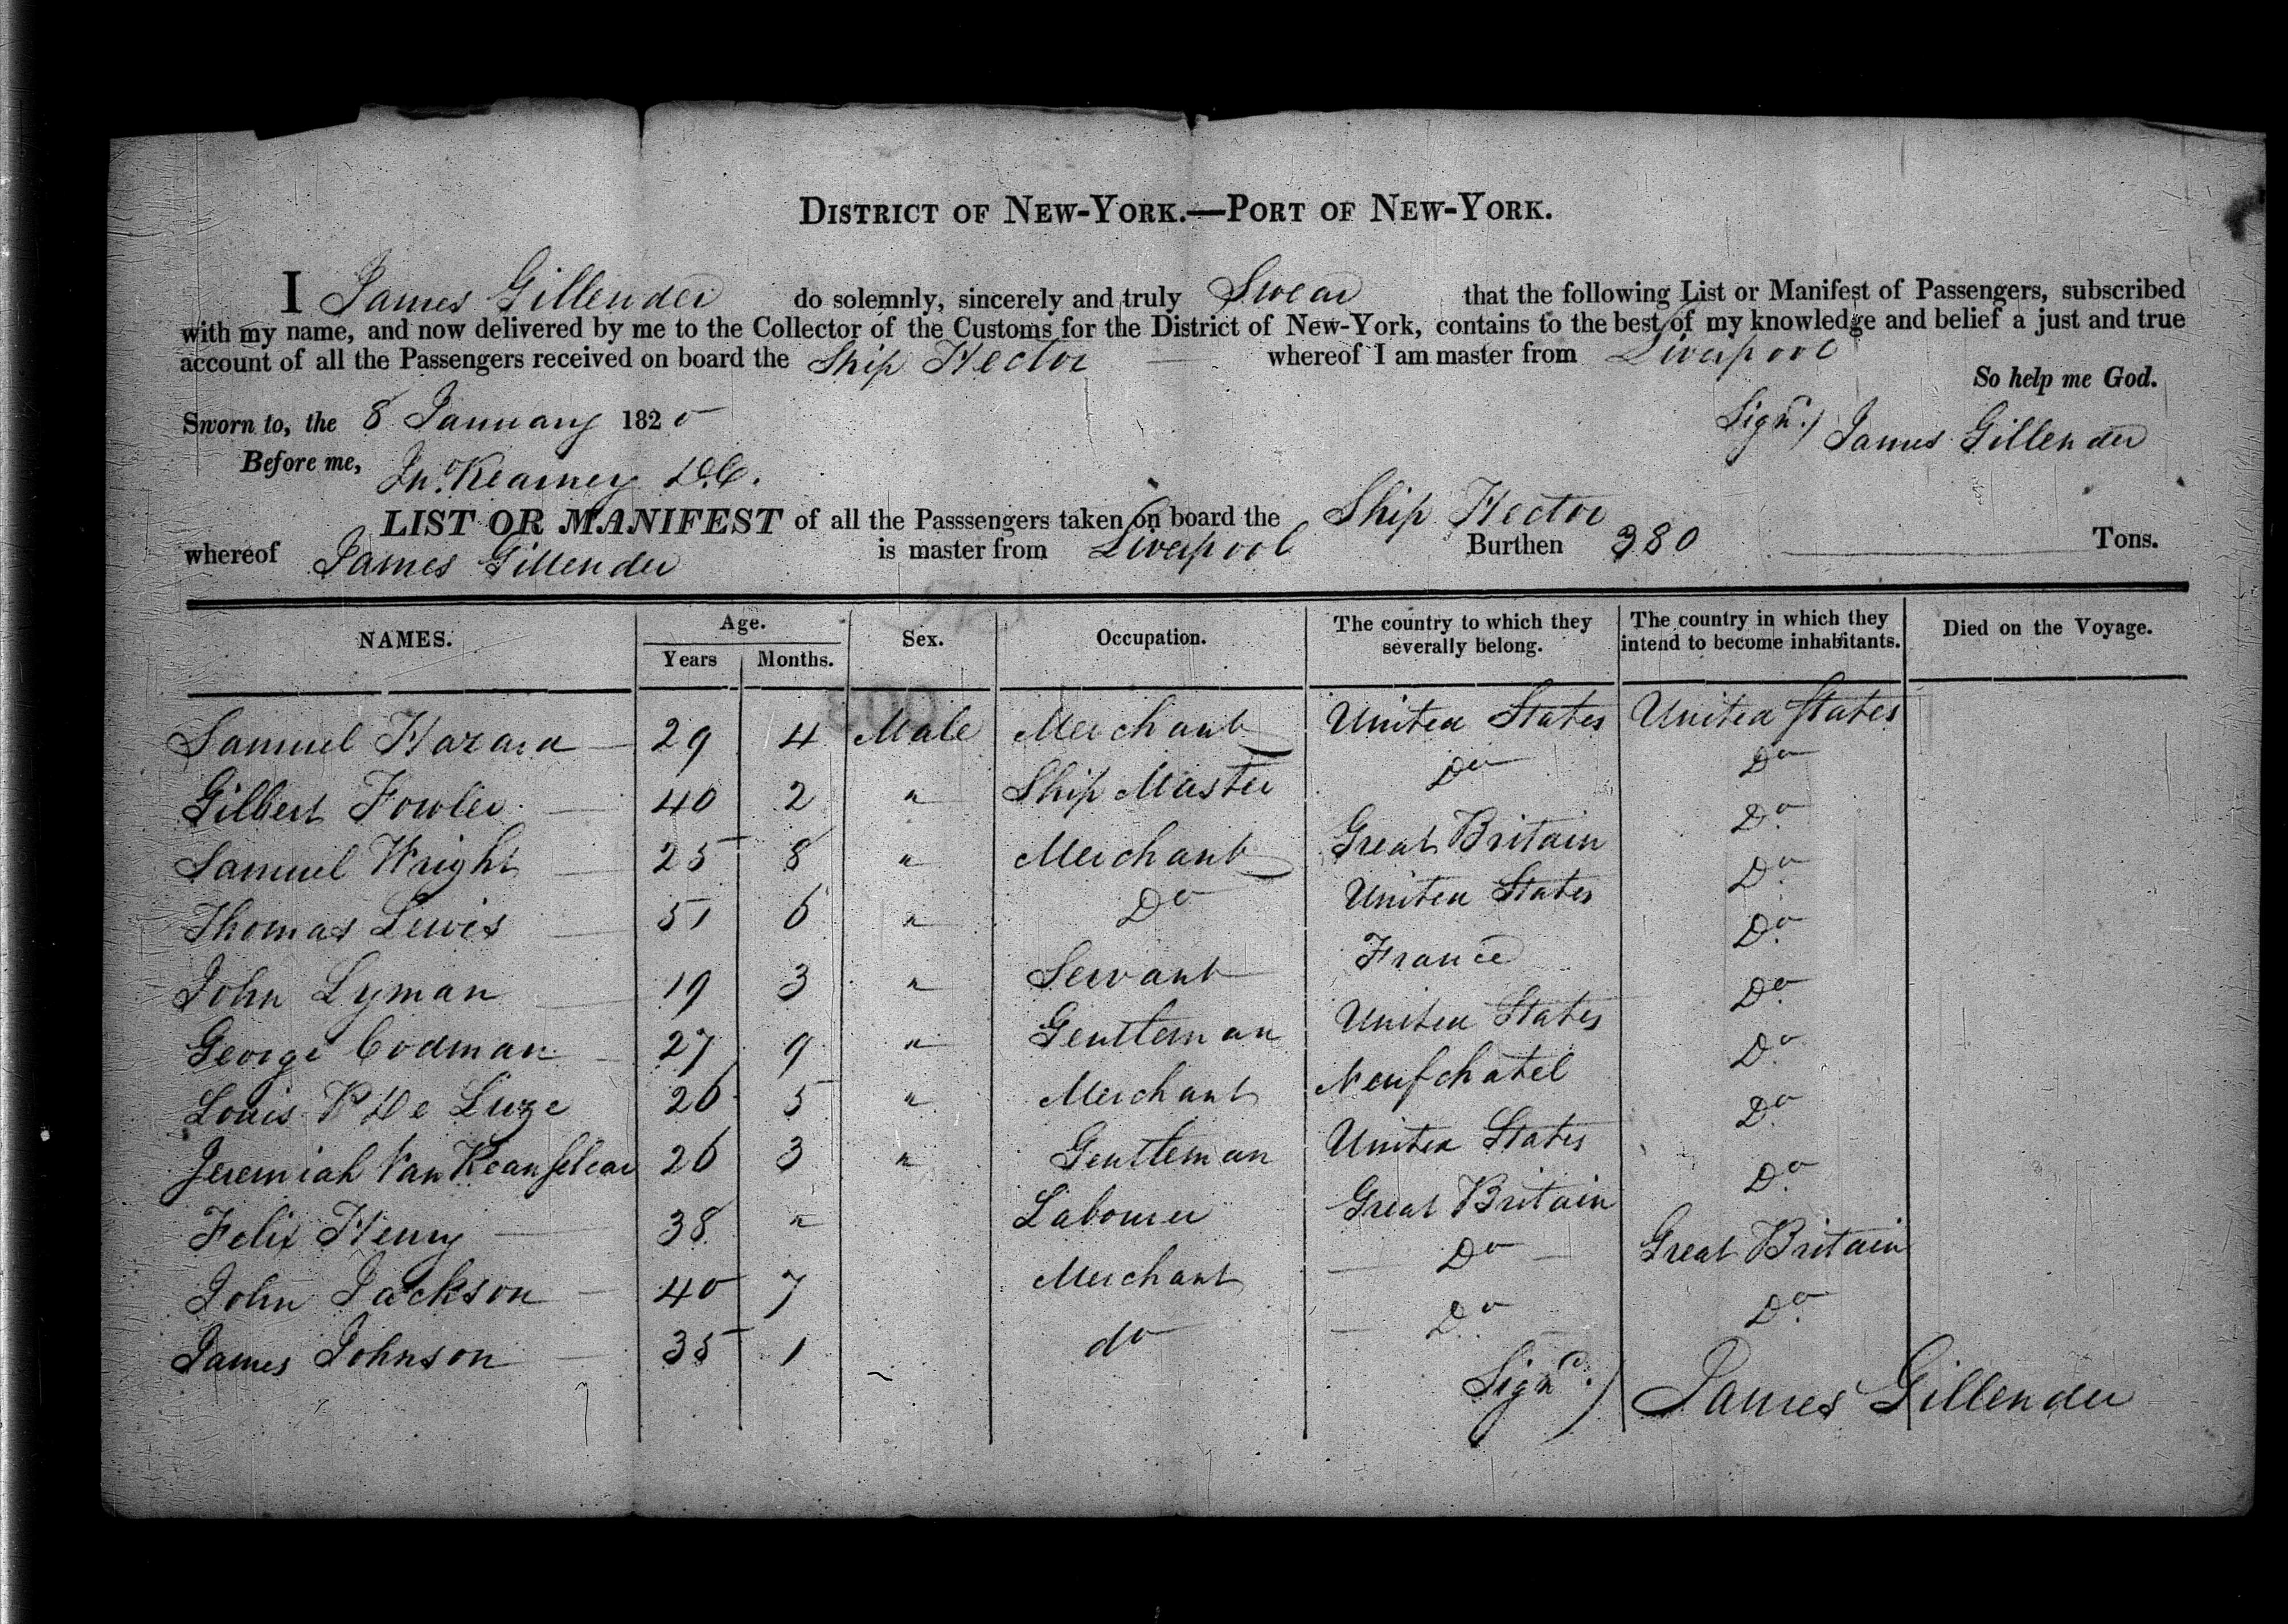 DISTRICT OF NEW-YORK.—PORT OF NEW-YORK.
I James Gillender do solemnly, sincerely and truly Swear that the following List or Manifest of Passengers, subscribed
with my name, and now delivered by me to the Collector of the Customs for the District of New-York, contains to the best of my knowledge and belief a just and true
account of all the Passengers received on board the Ship Hector whereof I am master from Liverpool
So help me God.
Sworn to, the 8 January 1820
Sign.d) James Gillender
Before me, Jno. Kearney D.C.
LIST OR MANIFEST of all the Passsengers taken on board the Ship Hector
whereof James Gillender is master from Liverpool Burthen 380 Tons.
NAMES. Age. Years Months. Sex. Occupation. The country to which they severally belong. The country in which they intend to become inhabitants. Died on the Voyage.
Samuel Hazard 29 4 Male Merchant United States United States
Gilbert Fowler 40 2 " Ship Master Do Do
Samuel Wright 25 8 " Merchant Great Britain Do
Thomas Lewis 51 6 " Do United States Do
John Lyman 19 3 " Servant France Do
George Codman 27 9 " Gentleman United States Do
Louis P De Luze 26 5 " Merchant Neufchatel Do
Jeremiah Van Reanselear 26 3 " Gentleman United States Do
Felix Henry 38 " Labourer Great Britain Do
John Jackson 40 7 Merchant Do Great Britain
James Johnson 35 1 do Do Do
Sign.d) James Gillender